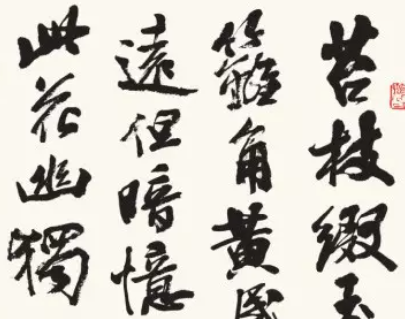 苔枝綴玉
籬角黃昏
遠但暗憶
此花幽獨